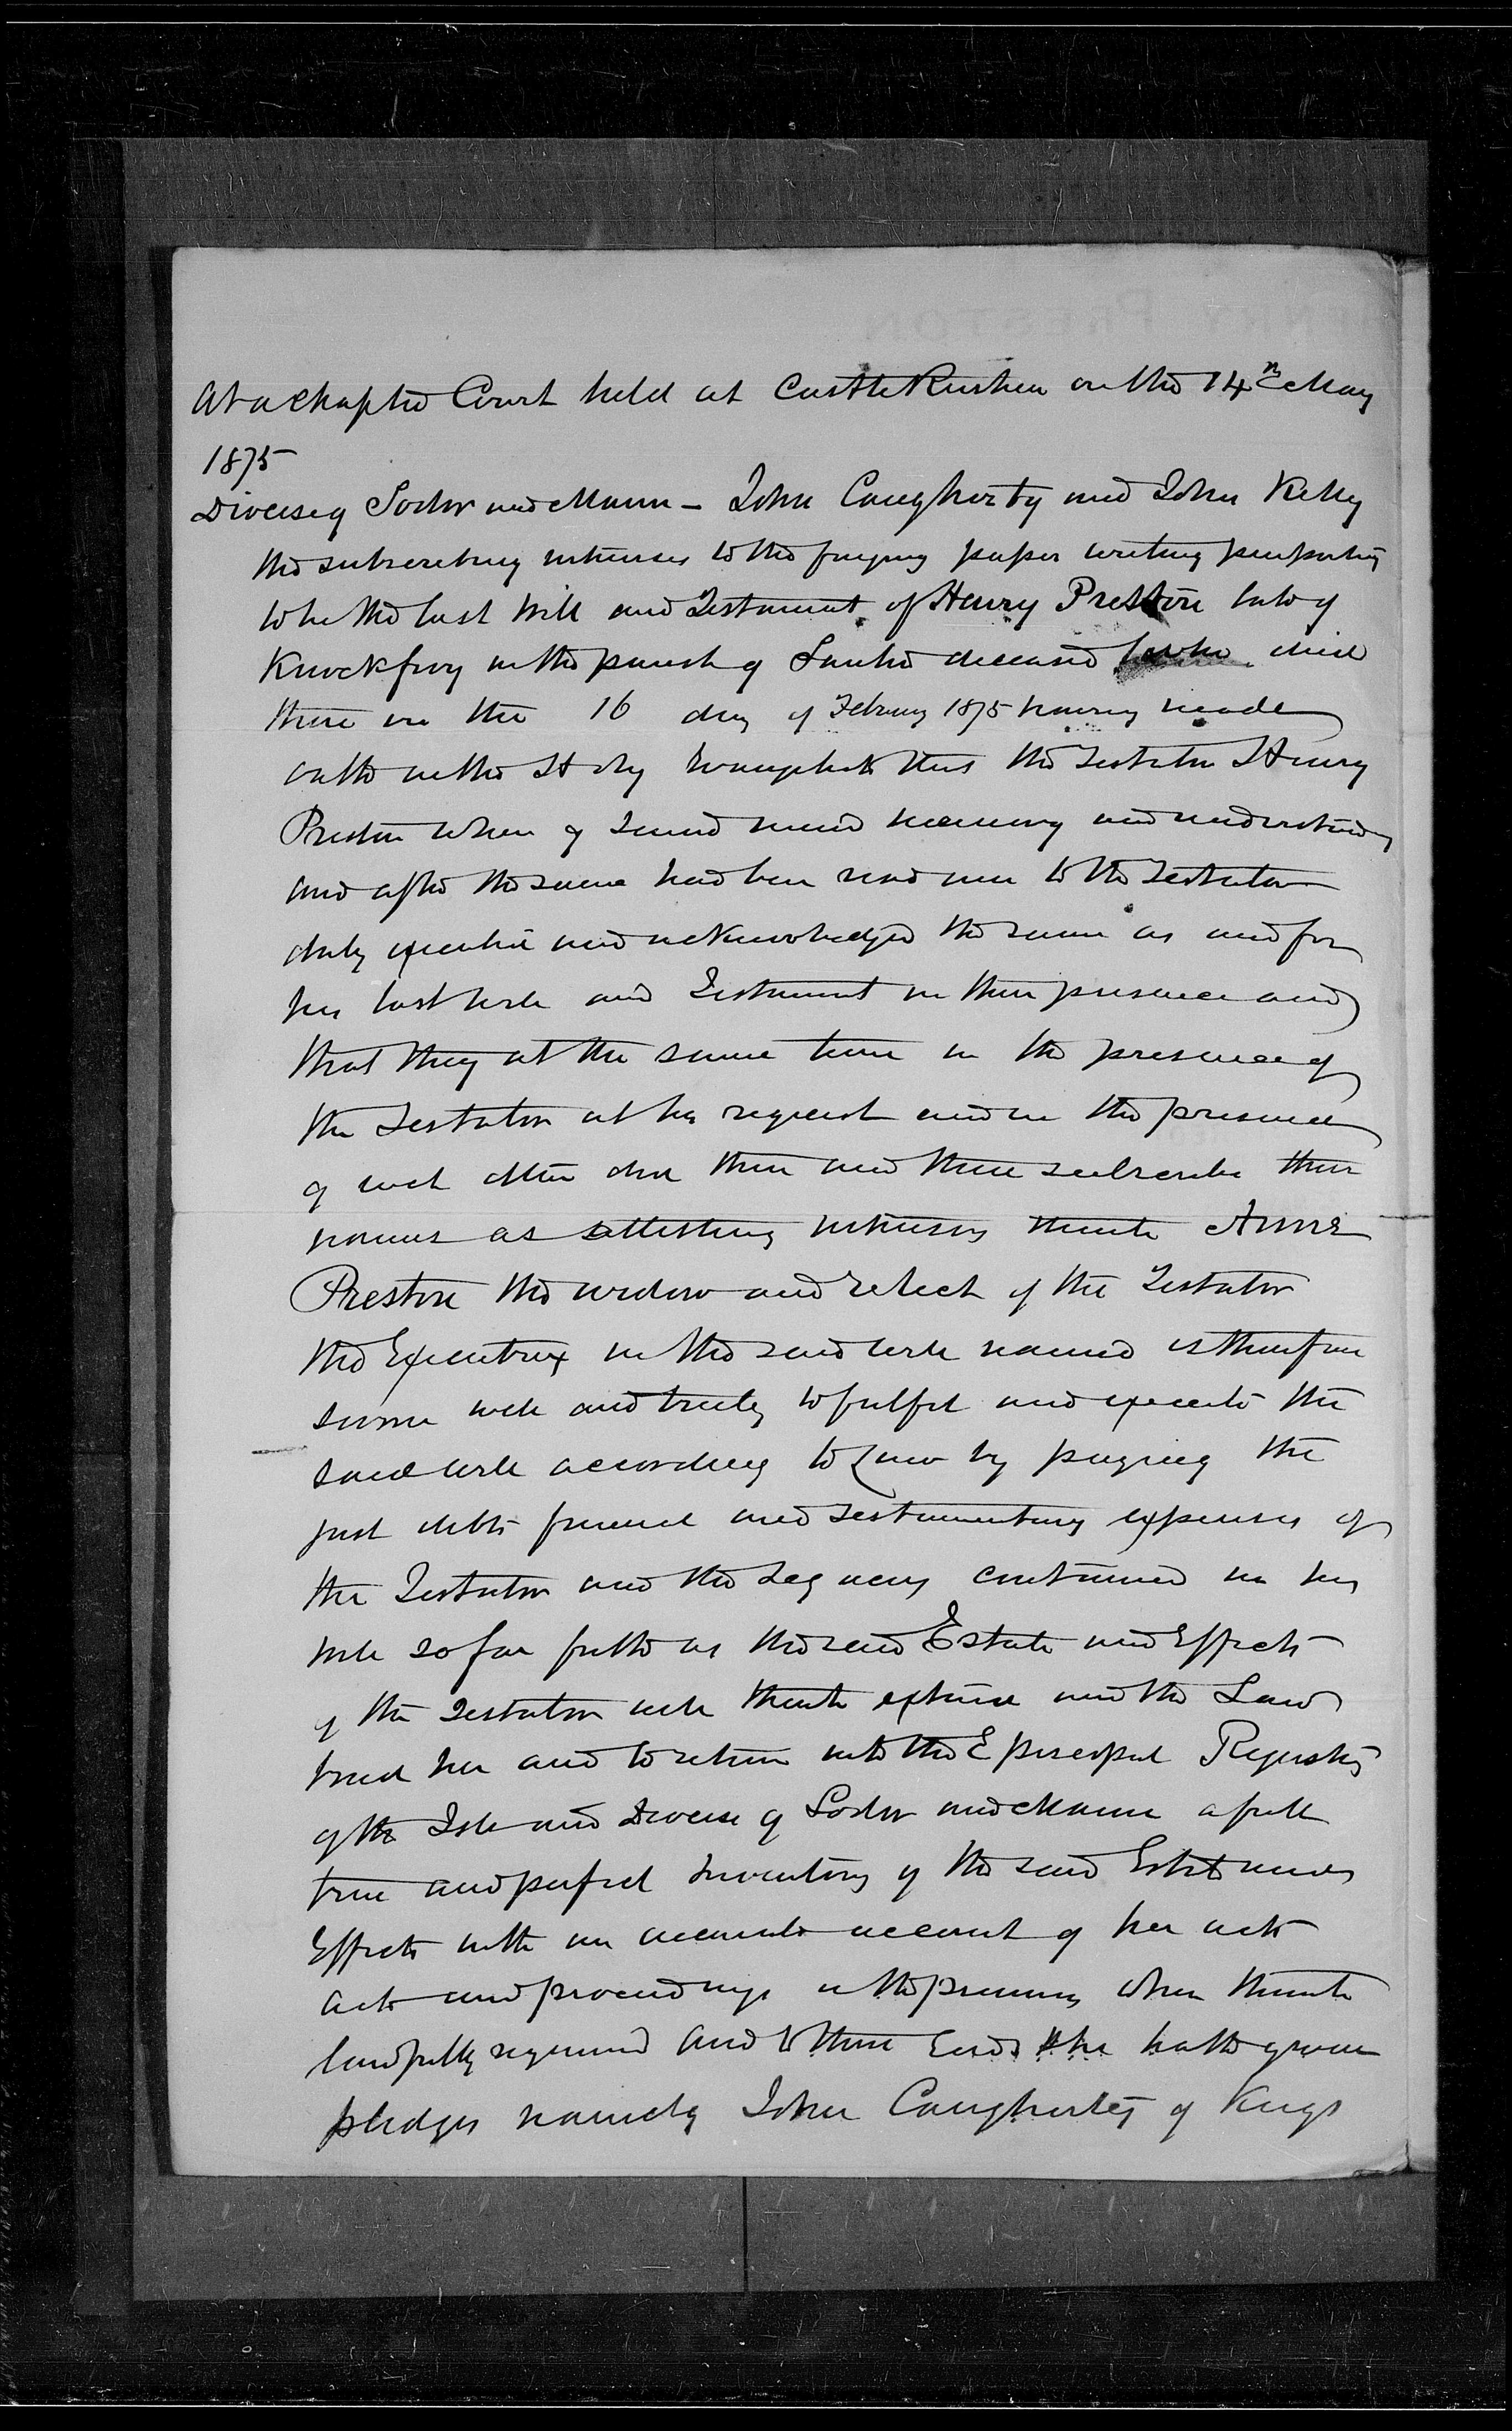 At a Chapter Court held at Castle Rushen on the 14th May
1875
Diocese of Sodor and Mann – John Caugherty and John Kelly
the subscribing witnesses to the foregoing paper writing purporting
to be the last Will and Testament of Henry Preston late of
Knockfroy in the parish of Santon deceased who died
there on the 16 day of February 1875 having made
oath on the Holy Evangelists that the Testator Henry
Preston when of sound mind memory and understanding
and after the same had been read over to the Testator
duly executed and acknowledged the same as and for
his last Will and Testament in their presence and
that they at the same time in the presence of
the Testator at his request and in the presence
of each other did then and there subscribe their
names as attesting witnesses thereto Anne
Preston the widow and relict of the Testator
the Executrix in the said will named is therefore
sworn well and truly to fulfil and execute the
said will according to Law by paying the
just debts funeral and Testamentary expenses of
the Testator and the Legacies contained in his
will so far forth as the said Estate and Effects
of the Testator will thereto extend and the Law
bind her and to return into the Episcopal Registry
of the Isle and Diocese of Sodor and Mann a full
true and perfect Inventory of the said Estate and
Effects with an accurate account of her acts
acts and proceedings in the premises when thereto
lawfully required and to these Ends she hath given
pledges namely John Caugherty of Kings